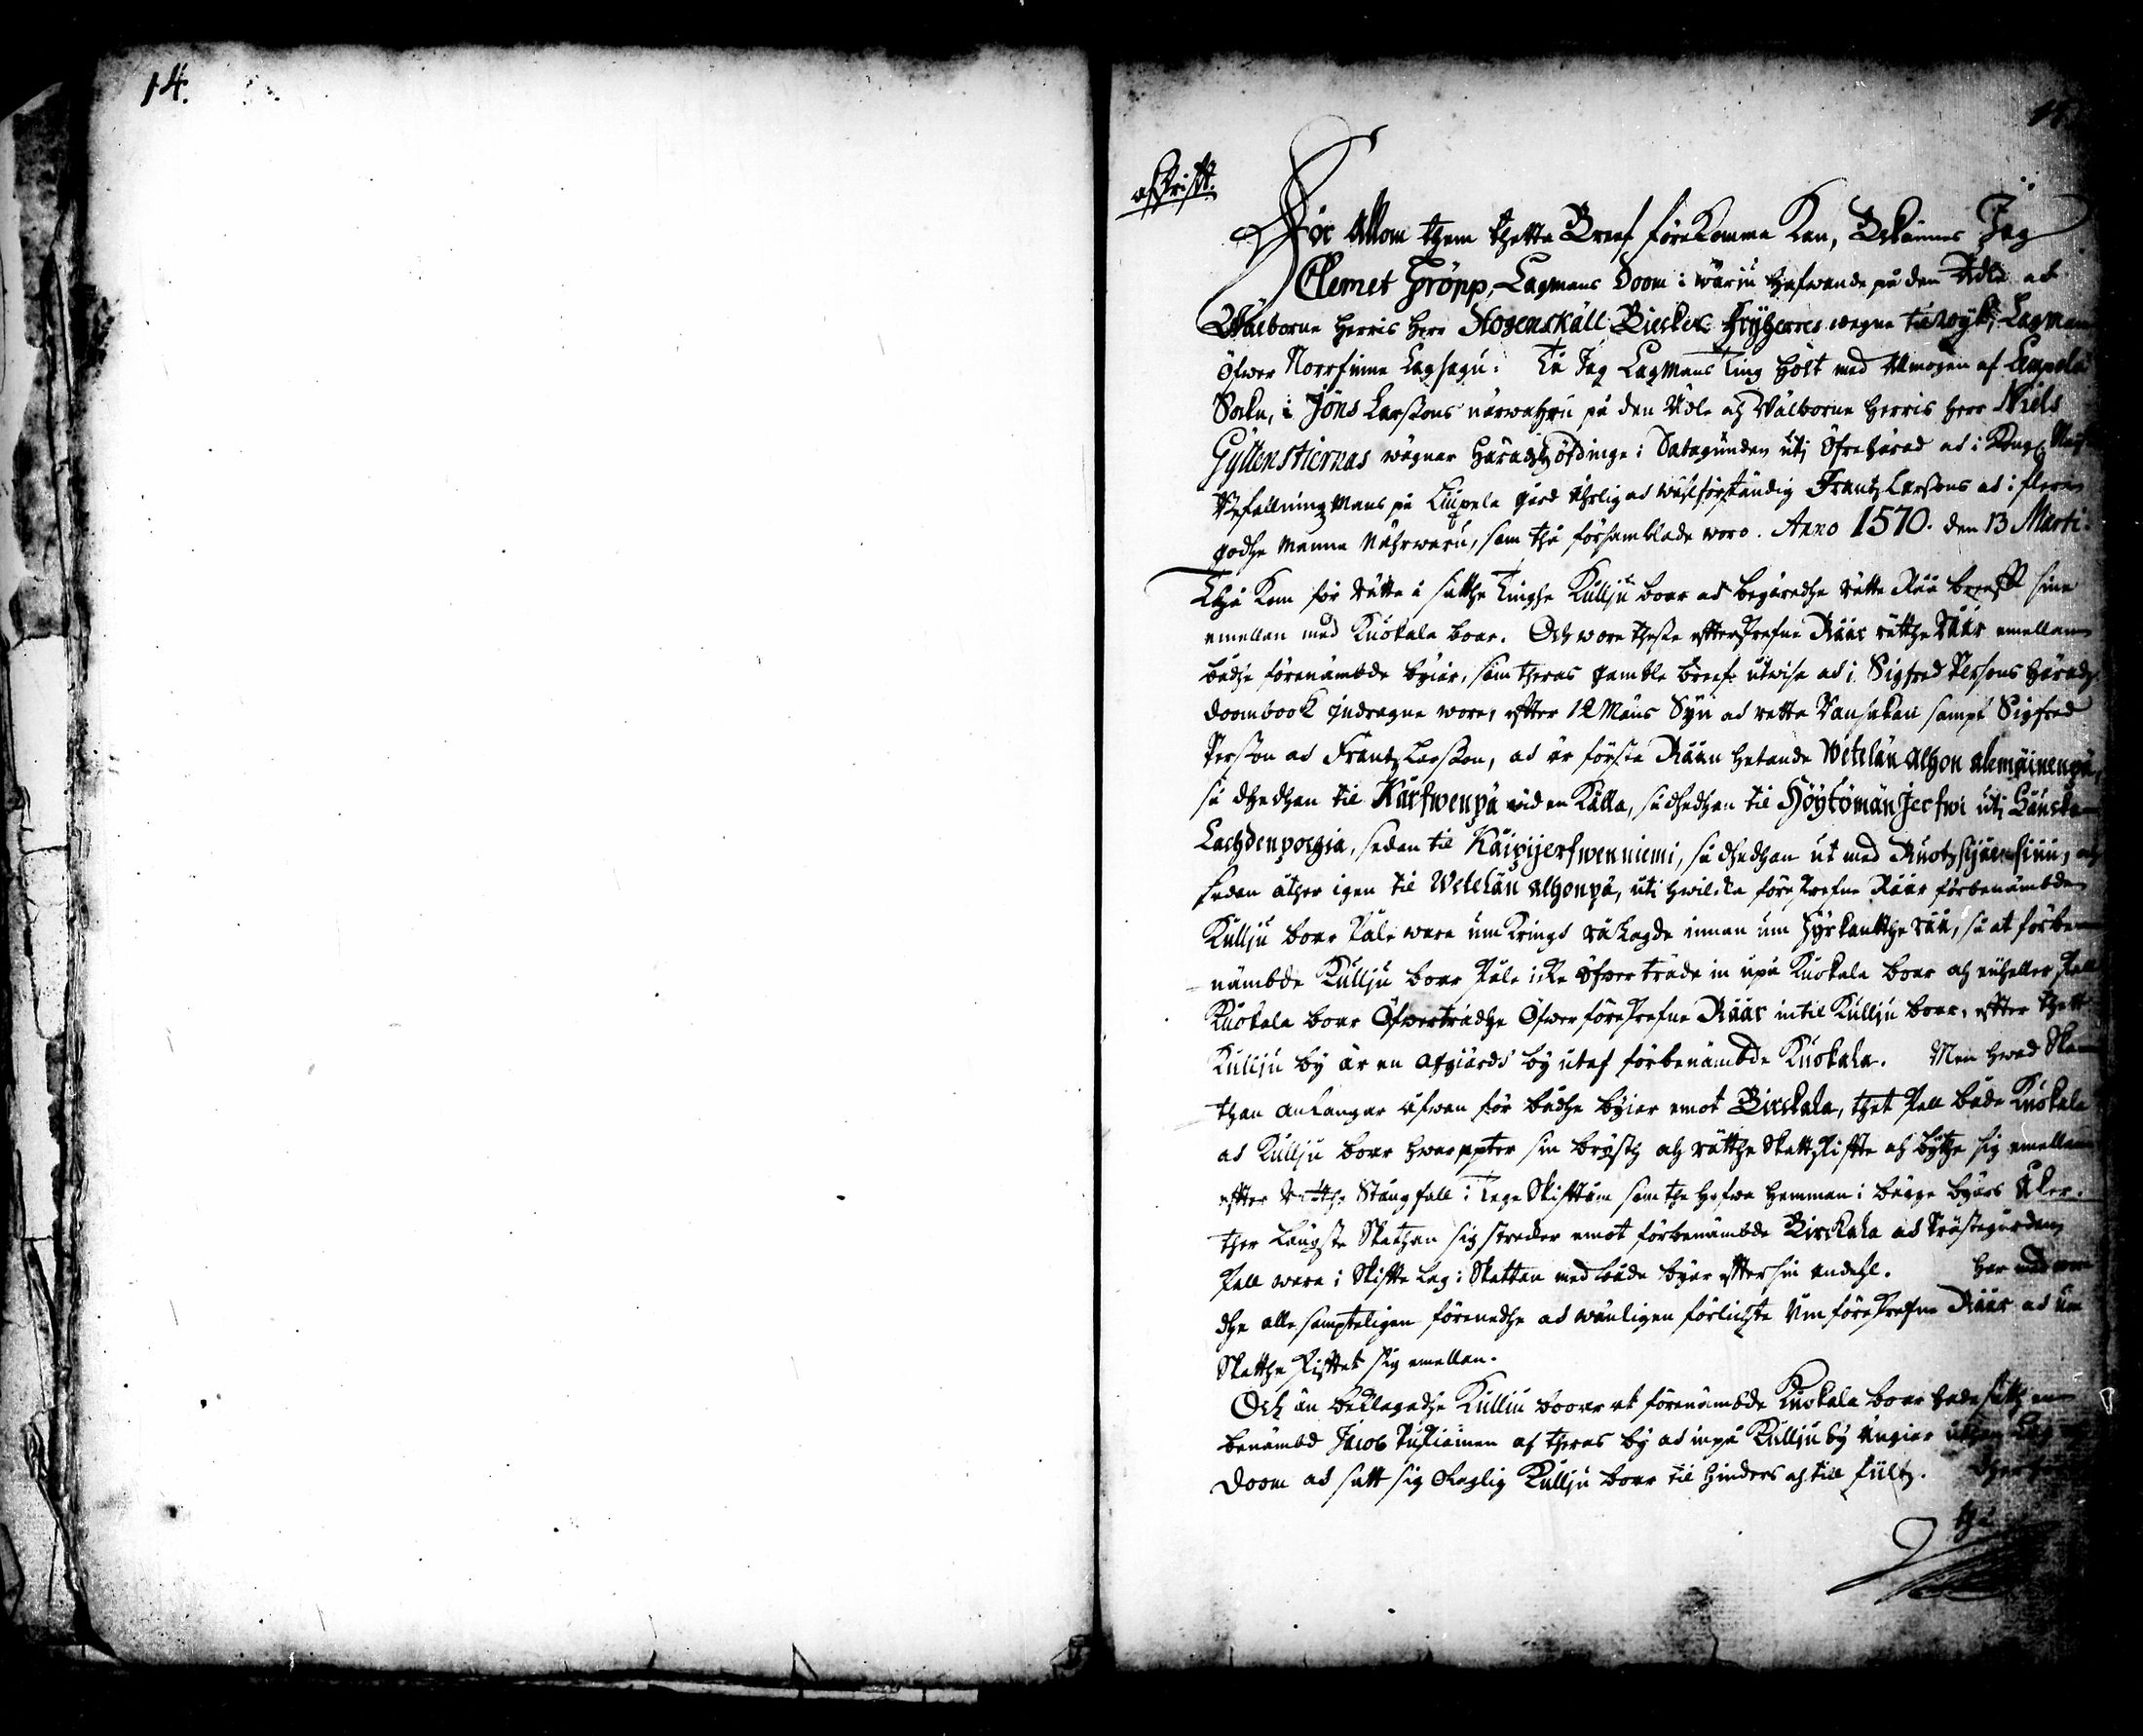 14.
15.
afskrifft.
För Allom them thetta Breef föreKomma Kan, Bekännes Jag
Clemet Gröpp, Lagmans Doom i wärju hafwande på den Ädle ad
Wälborne Herris herr Hogenskäll Bielkes Fryherres wegna til Wyk, Lagman
Öfwer Norrfinne Lagsagu: Tå Jag Lagmans Ting hölt med Almogen af Lempela
Sokn, i Jöns Larssons närwahru på den Ädle och Wälborne Herris herr Niels
Gyllenstiernas wägnar Häradzhöfdinge i Satagunden utj Öfrehärad ad i Kongl. May:tz
Befallningzmans på Liupela gård Ährlig ad Wälförståndig Frantz Larssons ad i flere
godhe Manna Nährwaru, som thå församblade woro. Anno 1570. den 13 Marti.
Thå Kom för rätta å satthe Tinghe Kulljuboar ad begäradhe rätta Råå breeff sine
emellan med Kuokala boar. Och wore thesse effterskrefne Råår rätthe råår emellan
bådhe förenämbde byiar, som theras gamble breef utwisa ad i Sigfred Persons härads
doombook indragne wore, effter 12 Mäns Syn ad retta Ransakan sampt Sigfred
Persson ad Frantz Larsson, ad är första Råån hetande Wetelän alhon alemäinenpä,
så dhedhan til Kärfwenpä wid en Källa, så dhedhan til Höytömän Jerfwi utj Hauska
Lachdenpochia, sedan til Käipijerfwenniemi, så dhedhan ut med Ruotzsijänsuu, och
sedan åther igen til Wetelän alhonpä, uti hwilcka föreskrefne Råår förbenämbde
Kullju boar skole ware umKrings råLagde innan um fyrkantthe råå, så at förbe-
nämbde Kullju boar skole icke öfwer träde in upå Kuokala boar och ei heller skall
Kuokala boar Öfwerträdhe Öfwer föreskrefne Råår in til Kullju boar, effter thett
Kullju by är en afgiärds by utaf förbenämbde Kuokala. Men hwad Ska-
than anlangar åfwan för bådhe byiar emot Birckala, thet skall både Kuokala
ad Kullju boar hwar epter sin brystz och rätthe Skattskiffte och bythe sig emellan
effter rätthe Stångfall i Tege Skifttum som the hafwa hemman i begge byars Åker.
ther Längste Skathan sig strecker emot förbenämbde Birckala ad Prästegården,
skall ware i Skiffte Lag i Skattan med både byar effter sin andehl. Her med wore
dhe alle sampteligen förenedhe ad wänligen förlichte Um föreskrefne Råår ad um
Skatthe skifftet sig emellan.
Och än beklagadhe Kulliu booar at förenämbde Kuokala boar hade satt en
benämbd Jacob af theras by ad in på Kullju by Ängiar uthan Lag
doom ad satt sig Olaglig Kullju boar til hinders och till fulth. Dherföre
thå